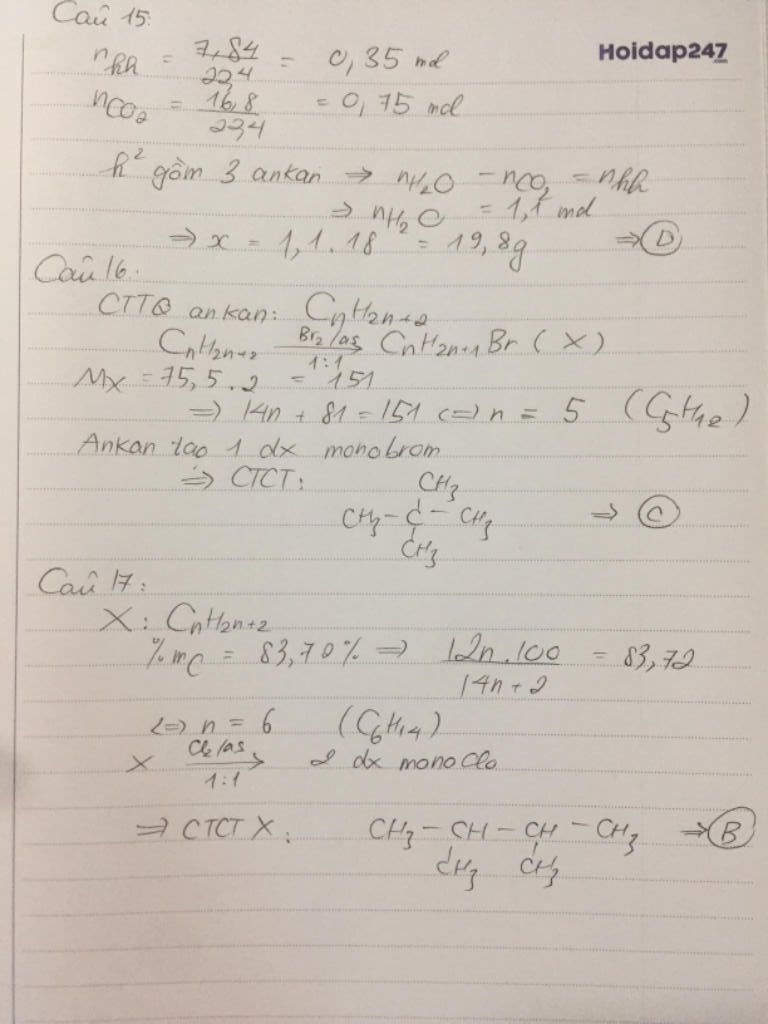 Câu 15:
Hoidap247
nhh = 7,84/22,4 = 0,35 mol
nCO2 = 16,8/22,4 = 0,75 mol
h² gồm 3 ankan ⇒ nH2O - nCO2 = nhh
⇒ nH2O = 1,1 mol
⇒ x = 1,1.18 = 19,8g ⇒ D
Câu 16:
CTTQ ankan: CnH2n+2
CnH2n+2 Br2/as → 1:1 CnH2n+1Br (X)
MX = 75,5.2 = 151
⇒ 14n + 81 = 151 <=> n = 5 (C5H12)
Ankan tạo 1 dx monobrom
⇒ CTCT: CH3
CH3 - C - CH3 ⇒ C
CH3
Câu 17:
X: CnH2n+2
%mC = 83,70% ⇒ 12n.100/14n+2 = 83,72
<=> n = 6 (C6H14)
X Cl2/as → 1:1 2 dx monoClo
⇒ CTCT X: CH3 - CH - CH - CH3 ⇒ B
CH3 CH3